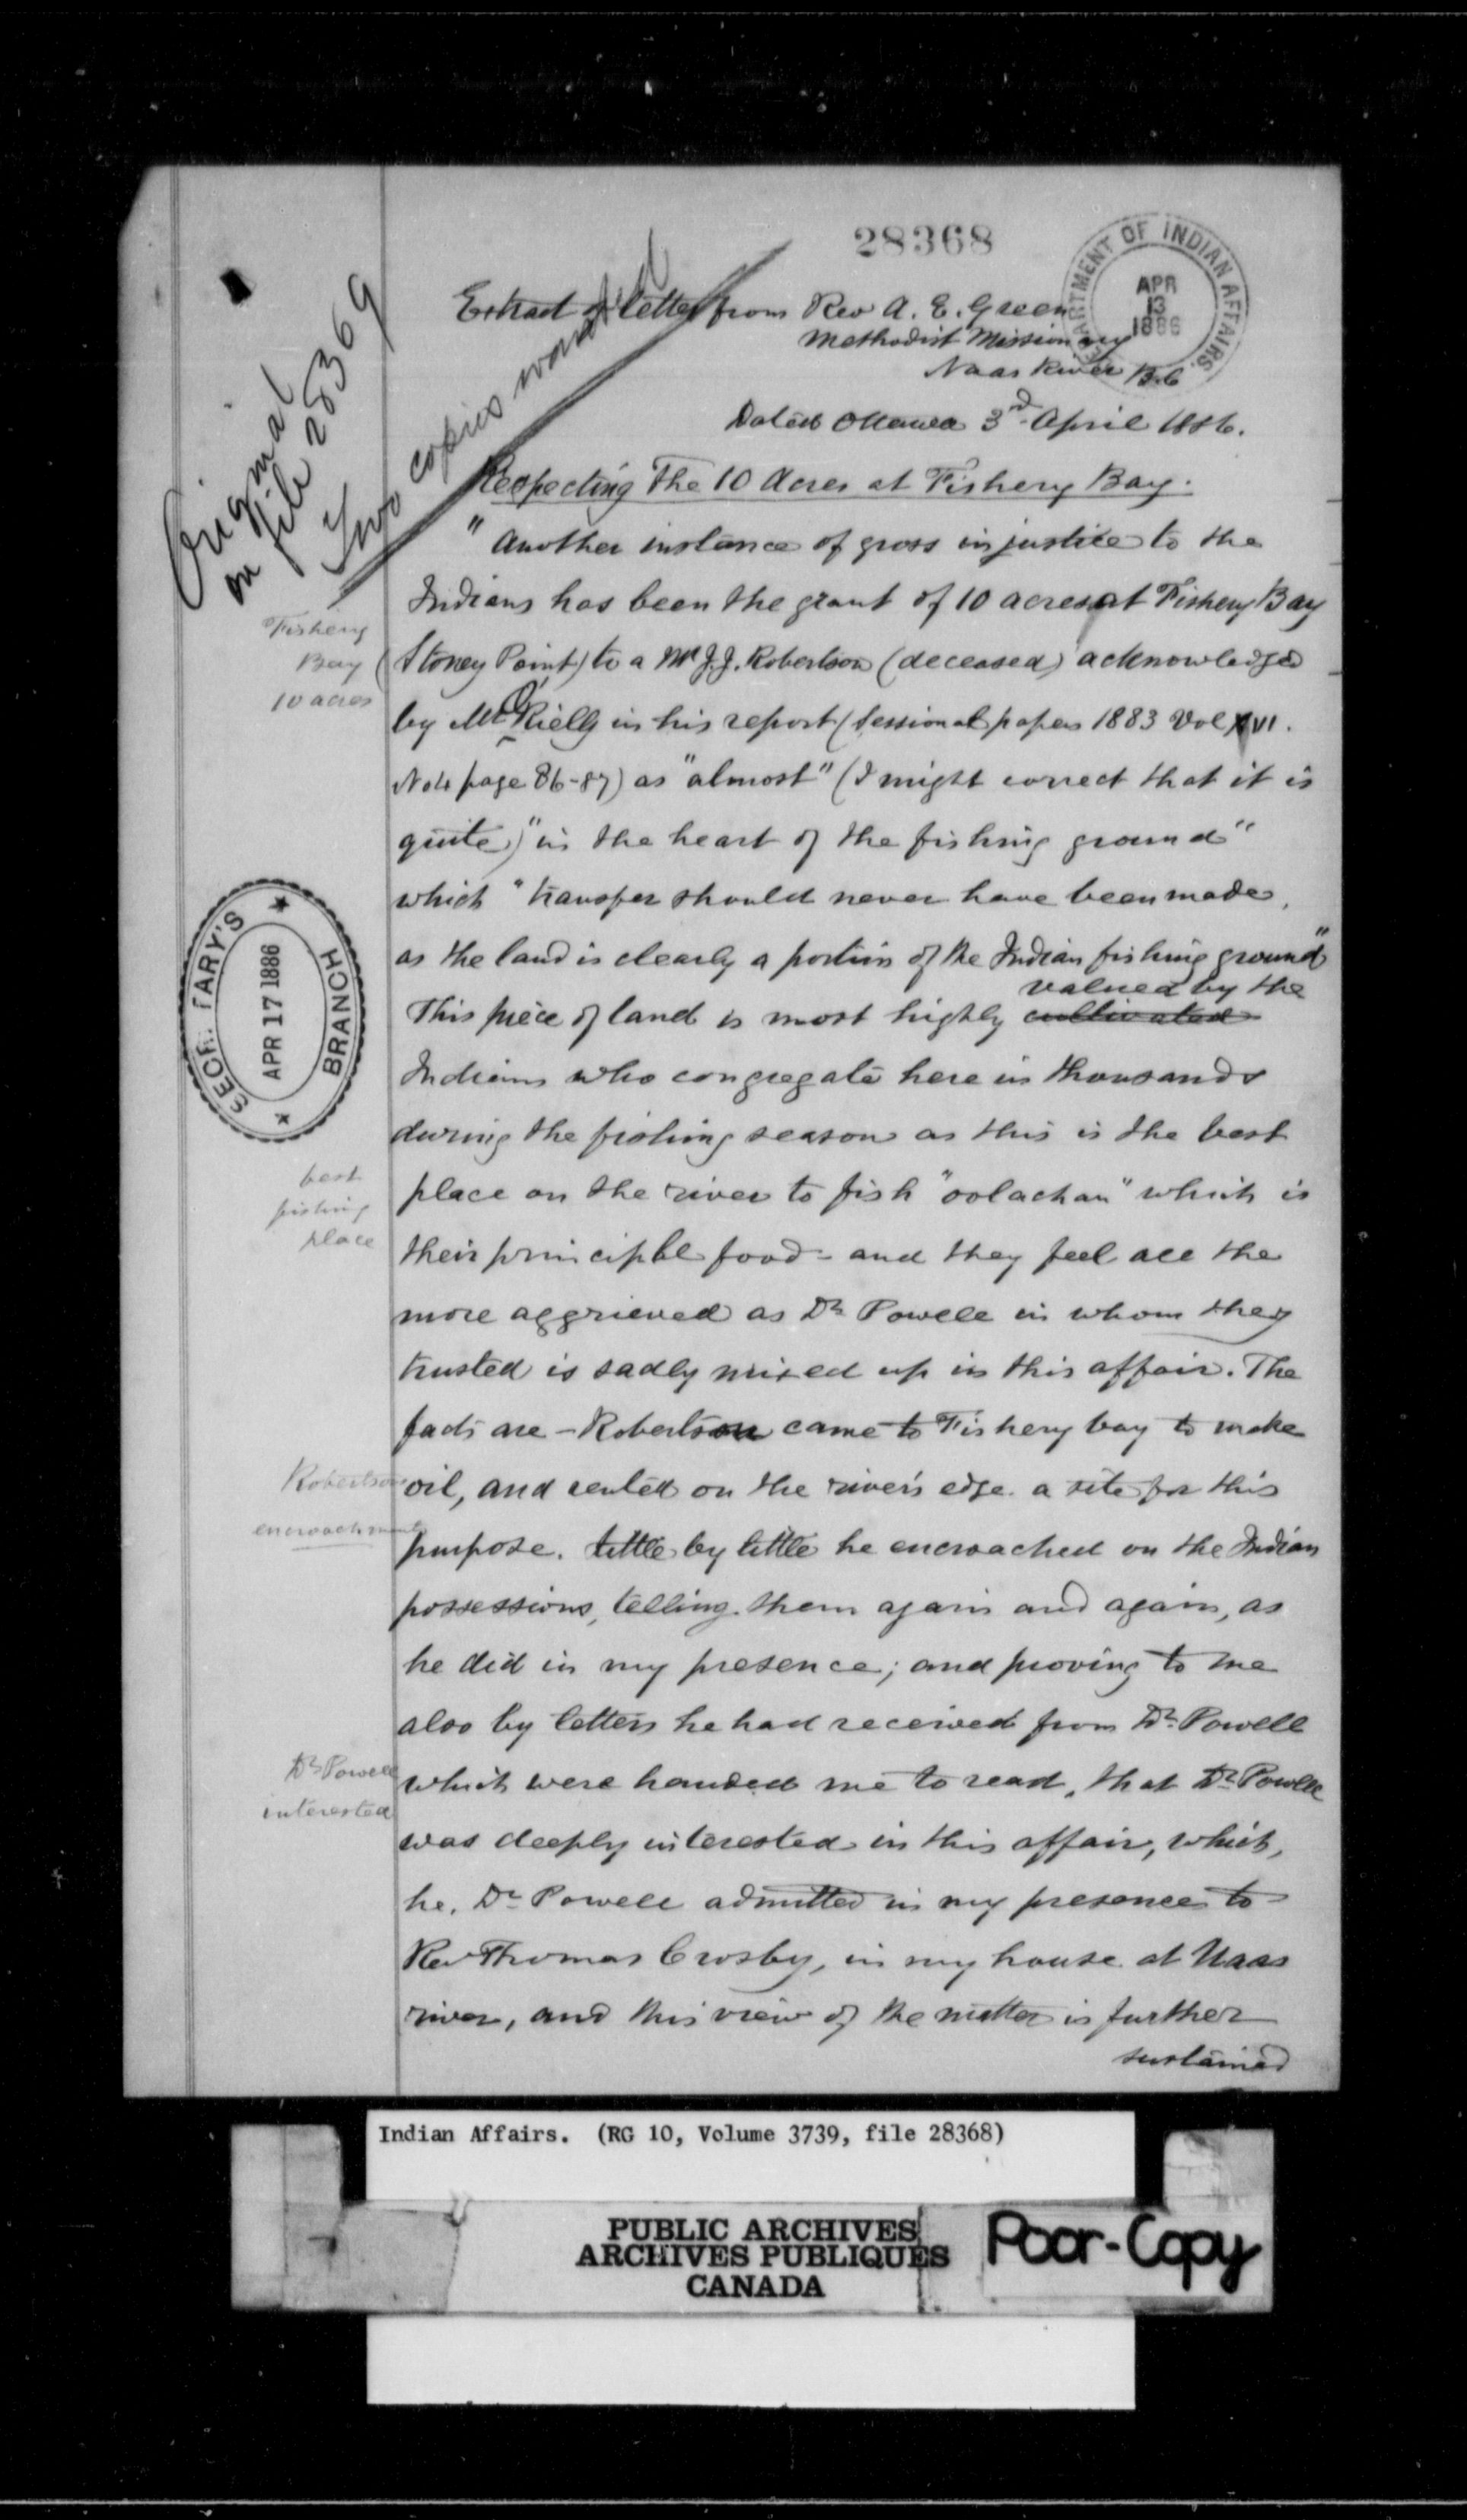 28368
DEPARTMENT OF INDIAN AFFAIRS.
APR
13
1886
Original
on file 28369
Two copies wanted
Extract of letter from Rev A. E. Green
Methodist Missionary
Naas River B.C
Dated Ottawa 3rd April 1886.
Respecting The 10 Acres at Fishery Bay.
"Another instance of gross injustice to the
Indians has been the grant of 10 acres at Fishery Bay
Fishery
Bay
10 acres
(Stoney Point) to a Mr J.J. Robertson (deceased) acknowledged
by Mr O'Rielly in his report (Sessional papers 1883 Vol XVI.
No 4 page 86-87) as "almost" (I might correct that it is
quite) "in the heart of the fishing ground"
which "transfer should never have been made,
as the land is clearly a portion of the Indian fishing ground"
SECRETARY'S
BRANCH
APR 17 1886
valued by the
This piece of land is most highly cultivated
Indians who congregate here in thousands
during the fishing season as this is the best
best
fishing
place
place on the river to fish "oolachan" which is
their principle food - and they feel all the
more aggrieved as Dr Powell in whom they
trusted is sadly mixed up in this affair. The
facts are - Robertson came to Fishery bay to make
Robertson
encroachments
oil, and rented on the river's edge a site for this
purpose. little by little he encroached on the Indian
possessions, telling them again and again, as
he did in my presence; and proving to me
also by letters he had received from Dr. Powell
Dr Powell
interested
which were handed me to read, that Dr Powell
was deeply interested in this affair, which,
he, Dr Powell admitted in my presence to
Rev Thomas Crosby, in my house at Naas
river, and this view of the matter is further
sustained
Indian Affairs. (RG 10, Volume 3739, file 28368)
PUBLIC ARCHIVES
ARCHIVES PUBLIQUES
CANADA
Poor-Copy